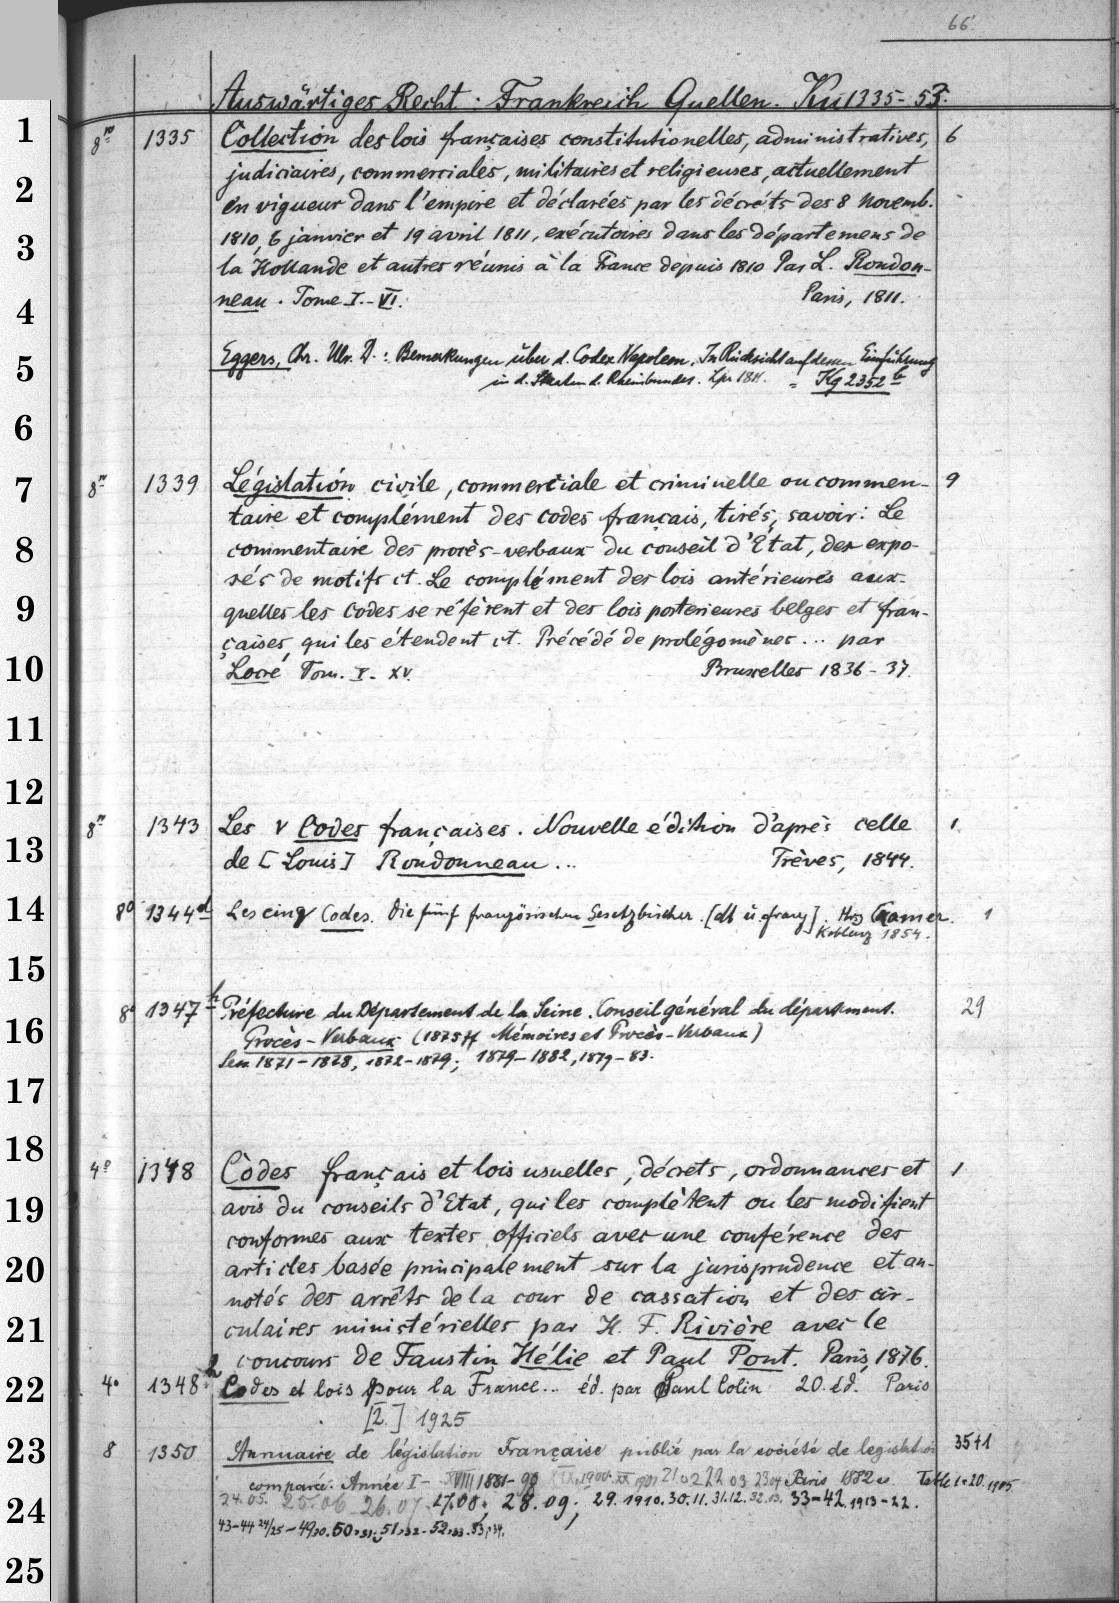 66.
Auswärtiges Recht: Frankreich Quellen. Ku 1335-53.
1 8º 1335 Collection des lois françaises constitutionelles, administratives, 6
2 judiciaires, commerciales, militaires et religieuses, actuellement
en vigueur dans l'empire et déclarées par les décrets des 8 Novemb.
3 1810, 6 janvier et 19 avril 1811, exécutoires dans les départemens de
la Hollande et autres réunis à la France depuis 1810 Par L. Rondon-
4 neau. Tome I.-VI. Paris, 1811.
5 Eggers, Chr. Ulr. D.: Bemerkungen über d. Codex Napoleon. In Rücksicht auf dessen Einführung
in d. Staaten d. Rheinbundes. Lpz 1811. = Kg 2352 b
6
7 8º 1339 Législation civile, commerciale et criminelle ou commen- 9
taire et complément des codes français, tirés, savoir: Le
8 commentaire des procès-verbaux du conseil d'Etat, des expo-
sés de motifs et. Le complément des lois antérieures aux-
9 quelles les Codes se réfèrent et des lois posterieures belges et fran-
çaises, qui les étendent et. Précédé de prolégomènes... par
10 Locré Tom. I- XV. Bruxelles 1836-37.
11
12
8º 1343 Les V Codes françaises. Nouvelle édition d'après celle 1
13 de [Louis] Rondonneau... Trèves, 1844.
14 8º 1344 d Les cinq Codes. Die fünf französischen Gesetzbücher. [dt u. franz]. Hrsg Cramer. 1
Koblenz 1854.
15
8º 1347 h Préfecture du Département de la Seine. Conseil général du département. 29
16 Procès-Verbaux (1875ff Mémoires et Procès-Verbaux)
Sess. 1871-1878, 1872-1879; 1879-1882, 1879-83.
17
18 4º 1348 Codes français et lois usuelles, décrets, ordonnances et 1
19 avis du conseils d'Etat, qui les complètent ou les modifient
conformes aux textes officiels avec une conférence des
20 articles basée principalement sur la jurisprudence et an-
notés des arrêts de la cour de cassation et des cir-
21 culaires ministérielles par H. F. Rivière avec le
concours de Faustin Hélie et Paul Pont. Paris, 1876.
22 4º 1348 2 Codes et lois pour la France... éd. par Paul Colin 20. éd. Paris
[2.] 1925
23 8 1350 Annuaire de législation Française publié par la société de legislation 35+1
comparée. Année I- XVIII 1881-99 XIX. 1900. XX 1901 21 02 22 03 23 04 Paris 1882 Table 1-20. 1905
24 24. 05. 25. 06 26. 07. 27. 08; 28. 09; 29. 1910. 30. 11. 31. 12. 32. 13. 33-42. 1913-22.
43-44 24/25-49,30. 50,31. 51,32-52,33. 53,34.
25